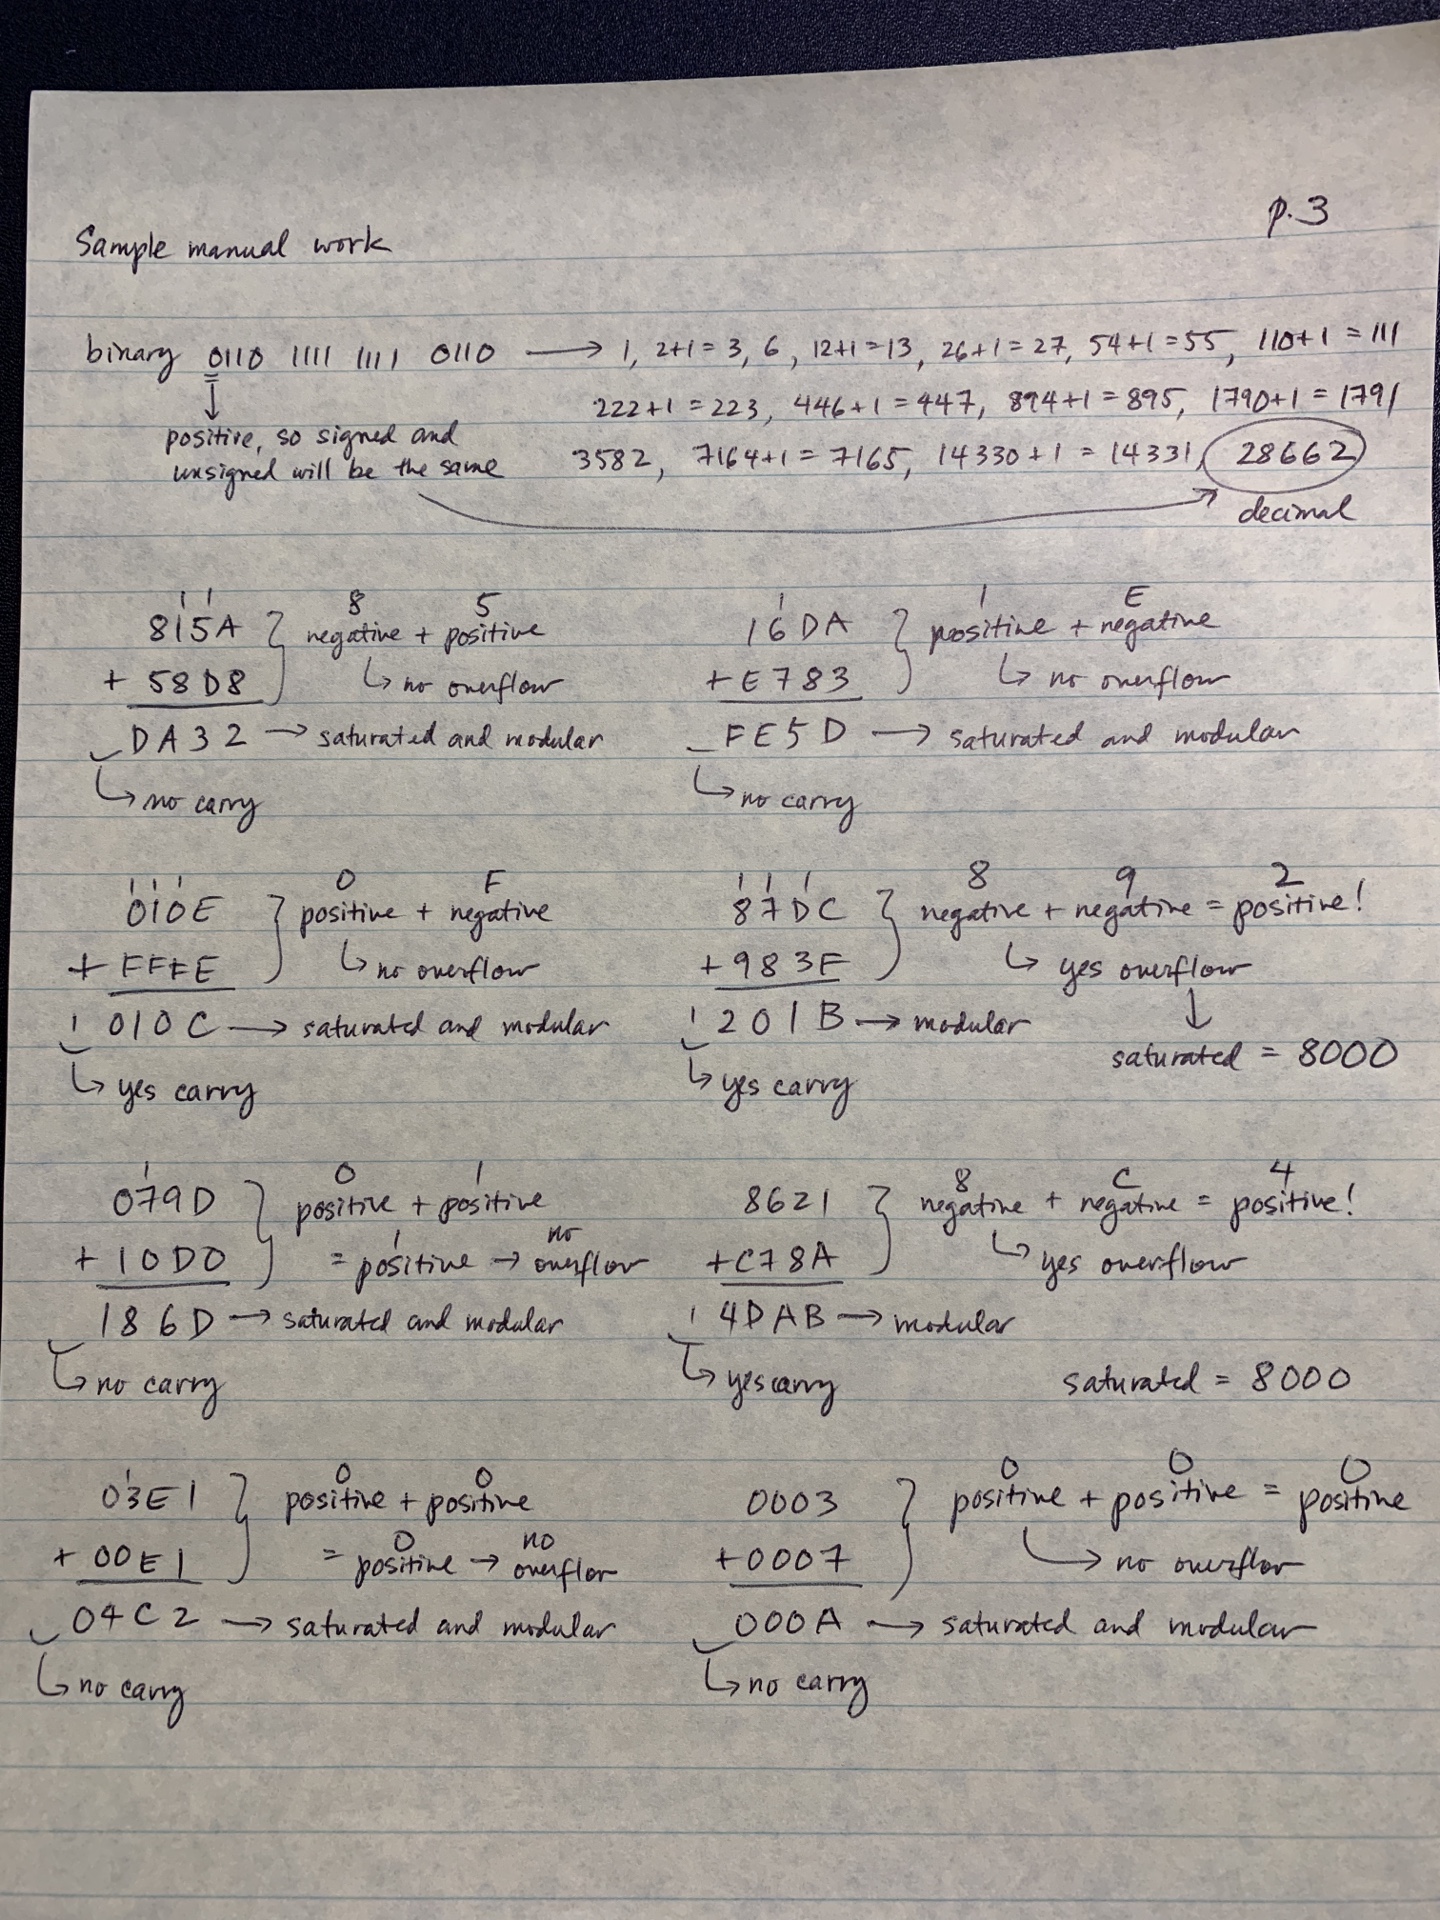 p.3
Sample manual work
binary 0110 1111 1111 0110 → 1, 2+1 = 3, 6, 12+1 = 13, 26+1 = 27, 54+1 = 55, 110+1 = 111
222+1 = 223, 446+1 = 447, 894+1 = 895, 1790+1 = 1791
positive, so signed and
unsigned will be the same
3582, 7164+1 = 7165, 14330+1 = 14331, 28662
decimal
1 1
815A
+ 58D8
DA32 → saturated and modular
no carry
8 5
negative + positive
no overflow
1
16DA
+ E783
FE5D → saturated and modular
no carry
1 E
positive + negative
no overflow
1 1 1
010E
+ FFFE
1 010C → saturated and modular
yes carry
0 F
positive + negative
no overflow
1 1 1
87DC
+ 983F
1 201B → modular
yes carry
8 9 2
negative + negative = positive!
yes overflow
saturated = 8000
1
079D
+ 10D0
186D → saturated and modular
no carry
0 1
positive + positive
1 no
= positive → overflow
8621
+ C78A
1 4DAB → modular
yes carry
8 C 4
negative + negative = positive!
yes overflow
saturated = 8000
1
03E1
+ 00E1
04C2 → saturated and modular
no carry
0 0
positive + positive
0 no
= positive → overflow
0003
+ 0007
000A → saturated and modular
no carry
0 0 0
positive + positive = positive
no overflow